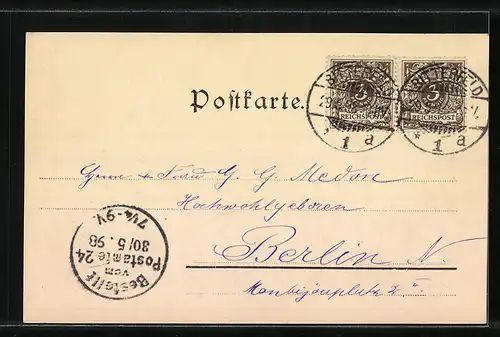 Postkarte.
BITTERFELD
1 a
3
REICHSPOST
BITTERFELD
* 1 a
3
REICHSPOST
Herrn + Frau G. G. Medon
Hochwohlgeboren
Berlin N.
Monbijouplatz
Bestellt
vom
Postamte 24
30/5.98
7¼-9V.